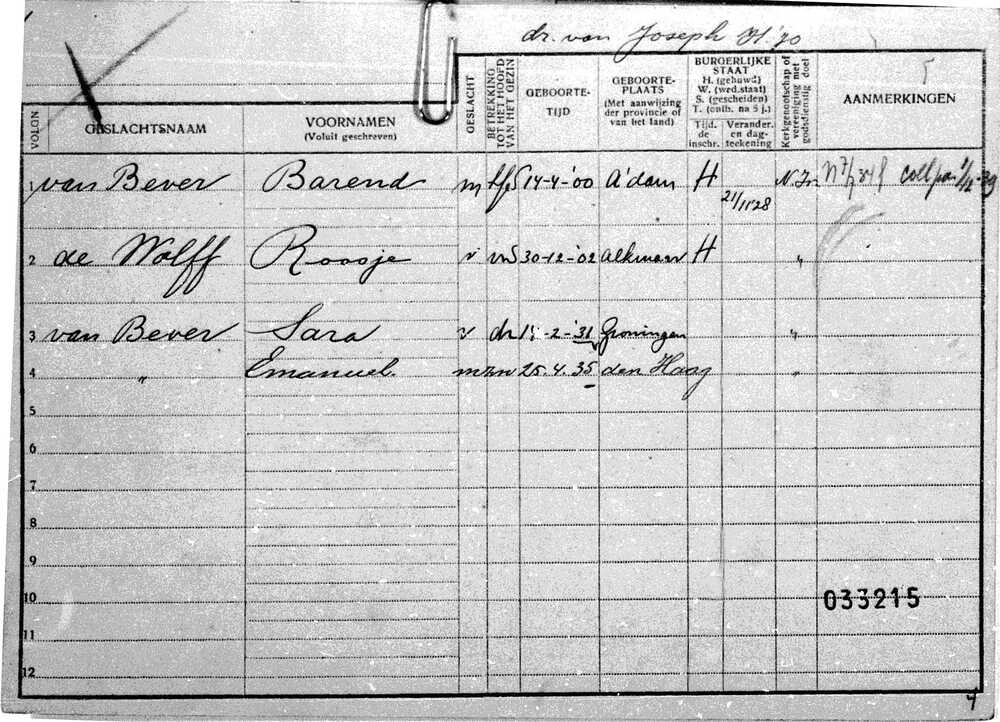 dr. van Joseph H. 70
VOLGN
GESLACHTSNAAM
VOORNAMEN
(Voluit geschreven)
GESLACHT
BETREKKING
TOT HET HOOFD
VAN HET GEZIN
GEBOORTE-
TIJD
GEBOORTE-
PLAATS
(Met aanwijzing
der provincie of
van het land)
BURGERLIJKE
STAAT
H. (gehuwd)
W. (wed.staat)
S. (gescheiden)
T. (ontb. na 5 j.)
Tijd.
de
inschr.
Verander.
en dag-
teekening
Kerkgenootschap of
vereeniging met
godsdienstig doel
5
AANMERKINGEN
1 van Bever Barend m hfs 14-4-'00 A'dam H 21/11 28 N. Isr
2 de Wolff Roosje v vrs 30-12-'02 Alkmaar H "
3 van Bever Sara v dr -2-'31 Groningen "
4 " Emanuel. m zn 25.4.35 den Haag "
5
6
7
8
9
10 033215
11
12
4